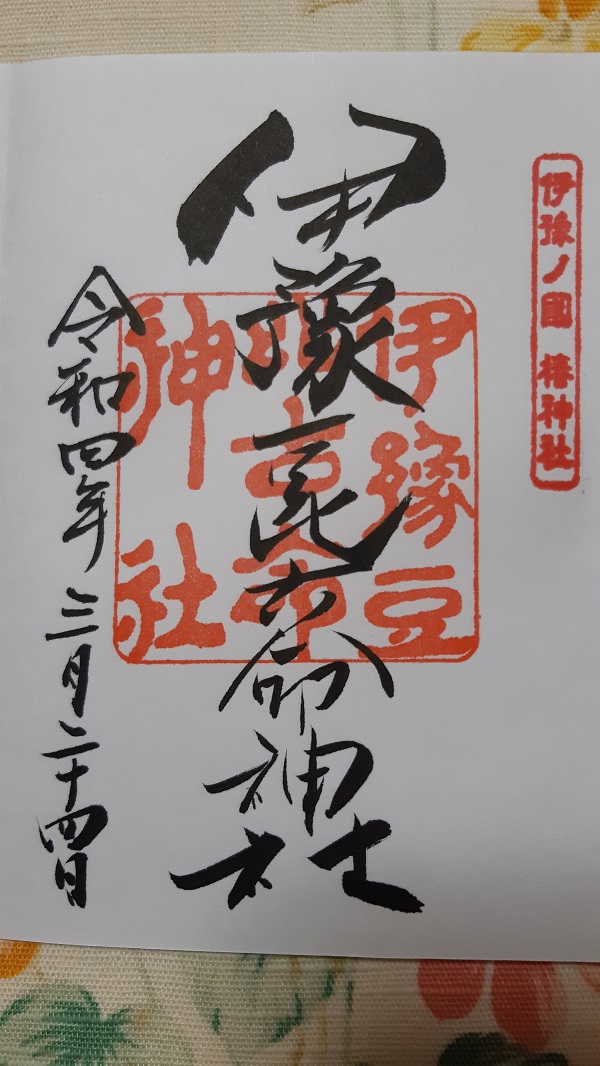 伊豫ノ國 椿神社
伊豫豆比古命神社
伊豫豆
比古命
神社
令和四年三月二十四日